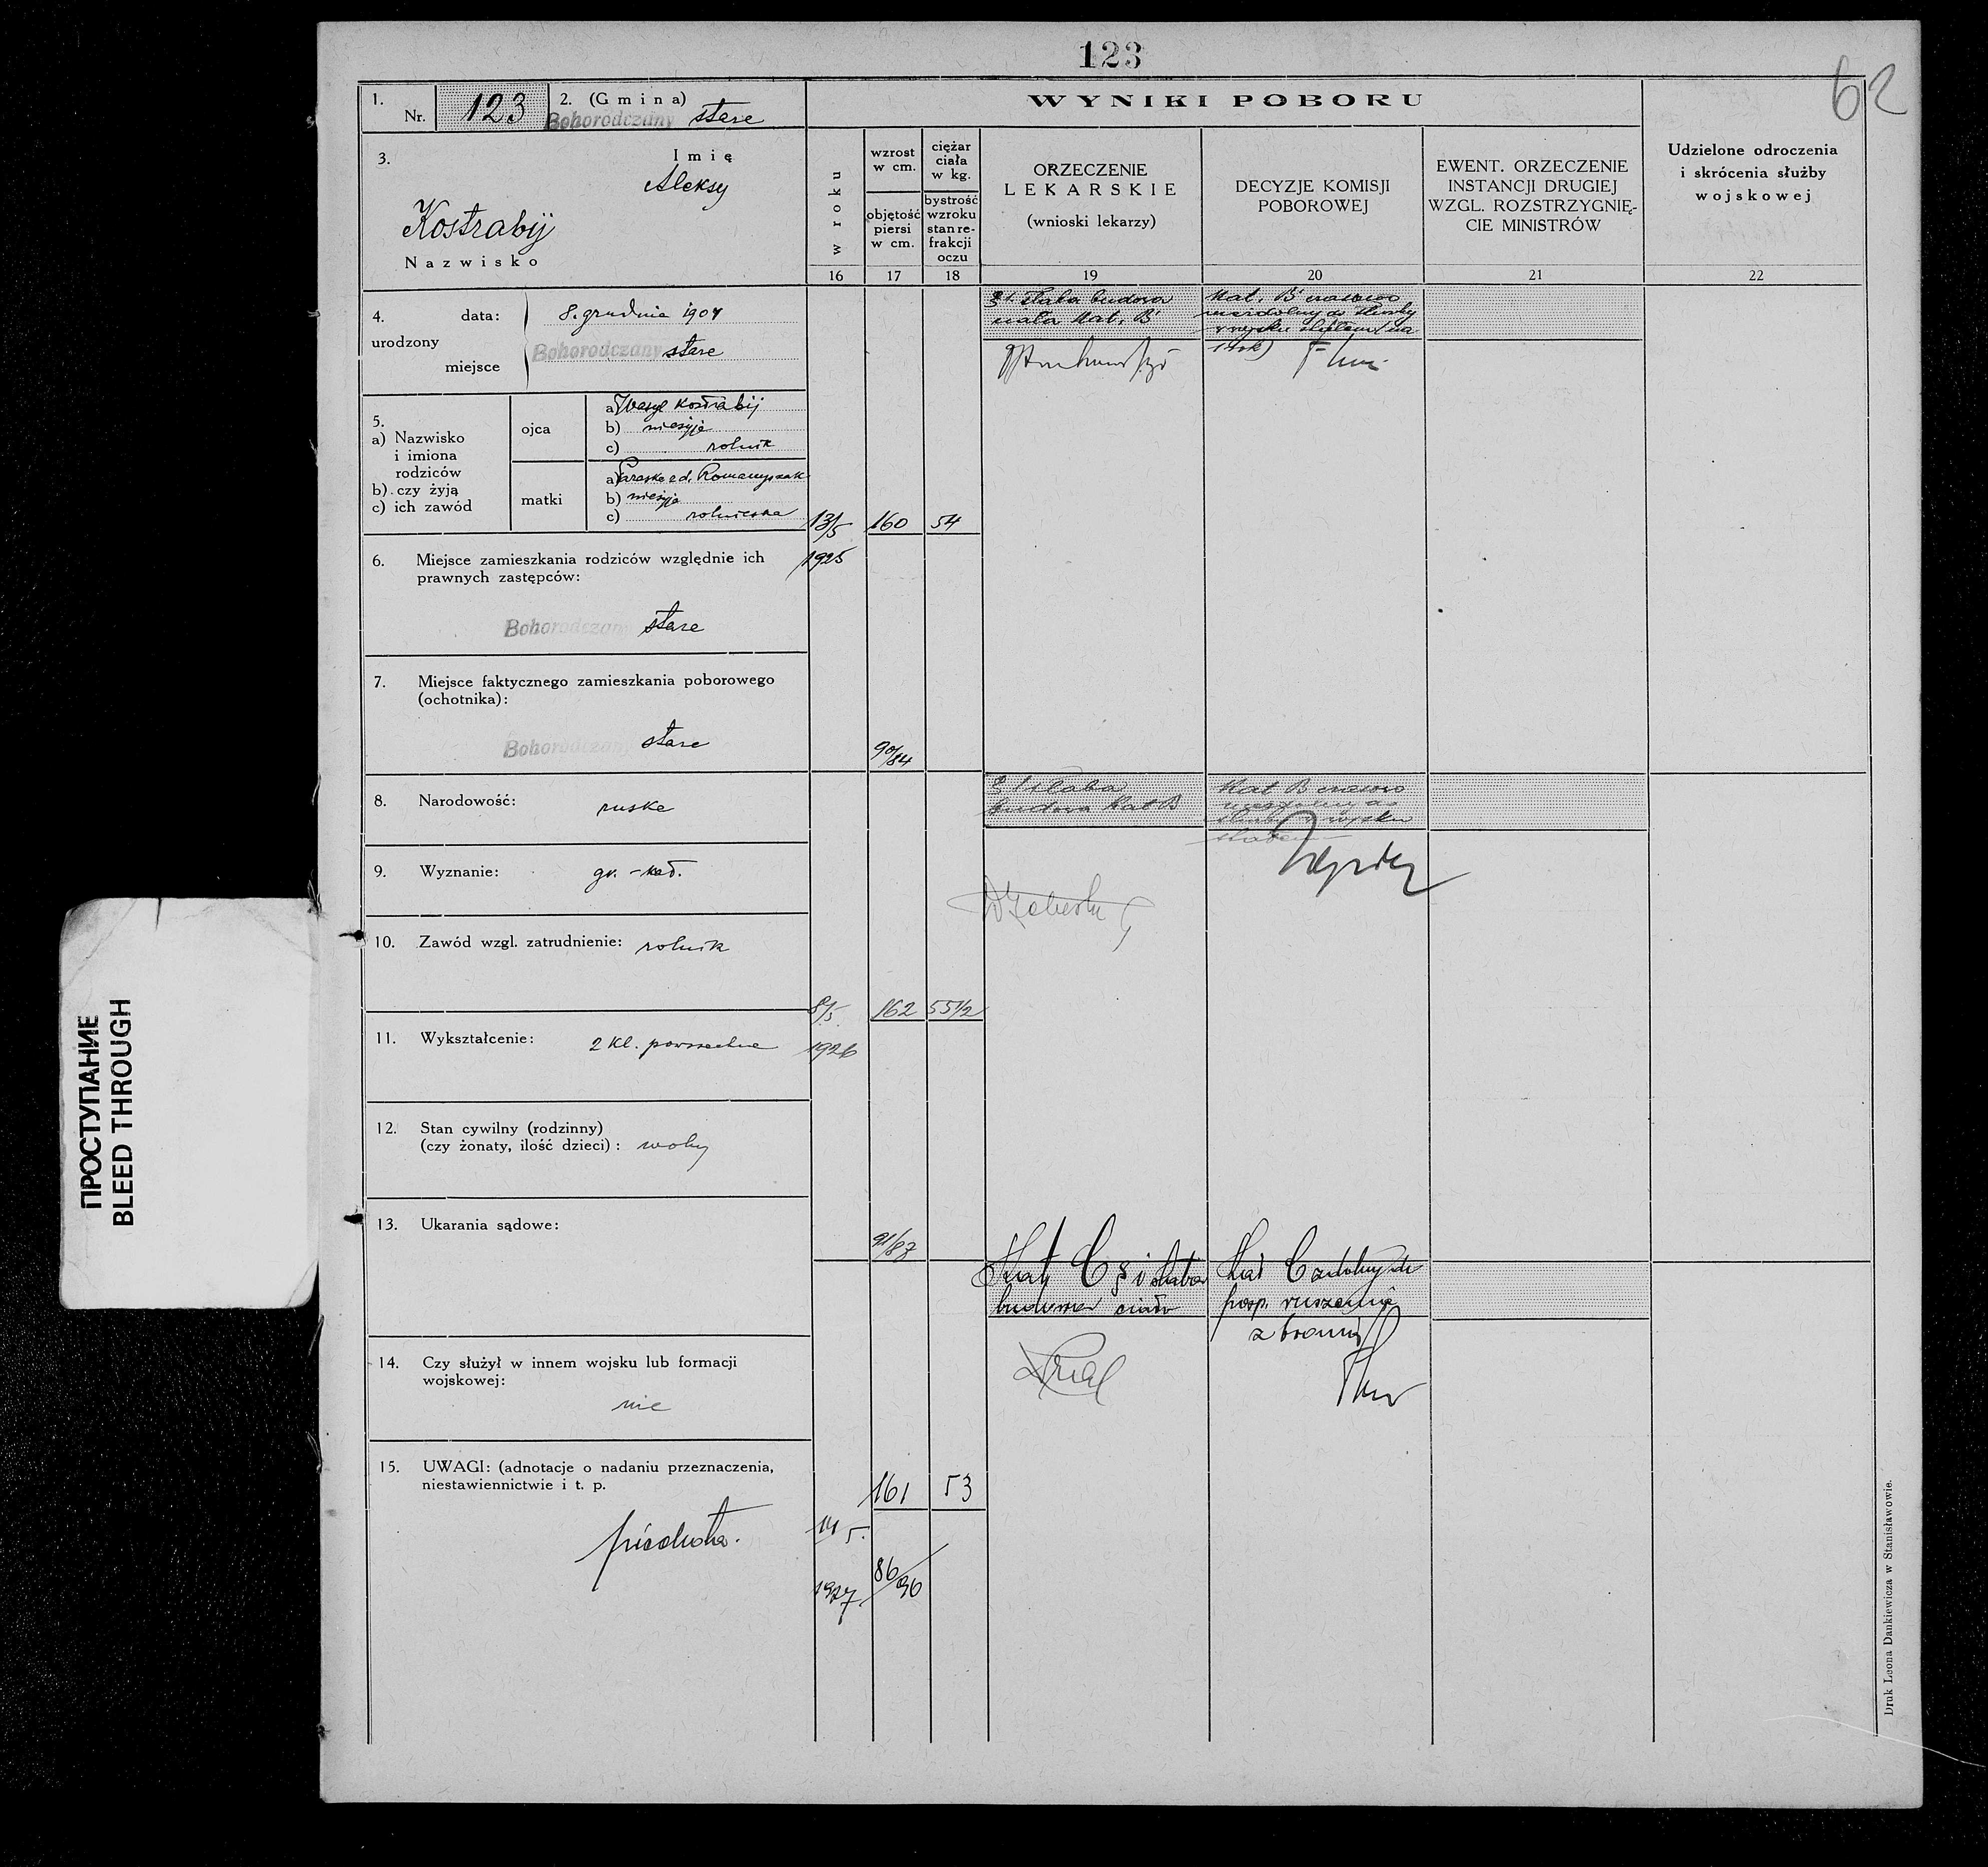 123
62
1.
Nr. 123
2. (Gmina)
Bohorodczany stare
WYNIKI POBORU
3.
Imię
Aleksy
Kostrabij
Nazwisko
w roku
wzrost w cm.
objętość piersi w cm.
ciężar ciała w kg.
bystrość wzroku stan re- frakcji oczu
ORZECZENIE
LEKARSKIE
(wnioski lekarzy)
DECYZJE KOMISJI
POBOROWEJ
EWENT. ORZECZENIE
INSTANCJI DRUGIEJ
WZGL. ROZSTRZYGNIĘ-
CIE MINISTRÓW
Udzielone odroczenia
i skrócenia służby
wojskowej
16 17 18 19 20 21 22
4. data: 8. grudnia 1904
urodzony
Bohorodczany stare
miejsce
słaba budowa
ciała Kat. B
Kat. B czasowo
niezdolny do służby
w wojsku
1 rok)
5.
a) Nazwisko
i imiona
rodziców
b) czy żyją
c) ich zawód
ojca
a) Wasyl Kostrabij
b) nieżyje
c) rolnik
matki
a) Paraska z d.
b) nieżyje
c) rolniczka
13/5 160 54
1925
6. Miejsce zamieszkania rodziców względnie ich
prawnych zastępców:
Bohorodczany stare
7. Miejsce faktycznego zamieszkania poborowego
(ochotnika):
Bohorodczany stare
90/84
8. Narodowość: ruska
słaba
budowa Kat B
Kat B czasowo
niezdolny do
służby w wojsku
9. Wyznanie: gr. - kat.
10. Zawód wzgl. zatrudnienie: rolnik
8/5. 162 55 1/2
1926
11. Wykształcenie: 2 kl. powszechne
12. Stan cywilny (rodzinny)
(czy żonaty, ilość dzieci): wolny
13. Ukarania sądowe:
91/87
Kat C § 1 słaba
budowa ciała
Kat C zdolny do
posp. ruszenia
z bronią
14. Czy służył w innem wojsku lub formacji
wojskowej:
nie
15. UWAGI: (adnotacje o nadaniu przeznaczenia,
niestawiennictwie i t. p.
piechota.
161 53
14/5.
1927
86/90
Druk Leona Dankiewicza w Stanisławowie.
ПРОСТУПАНИЕ
BLEED THROUGH